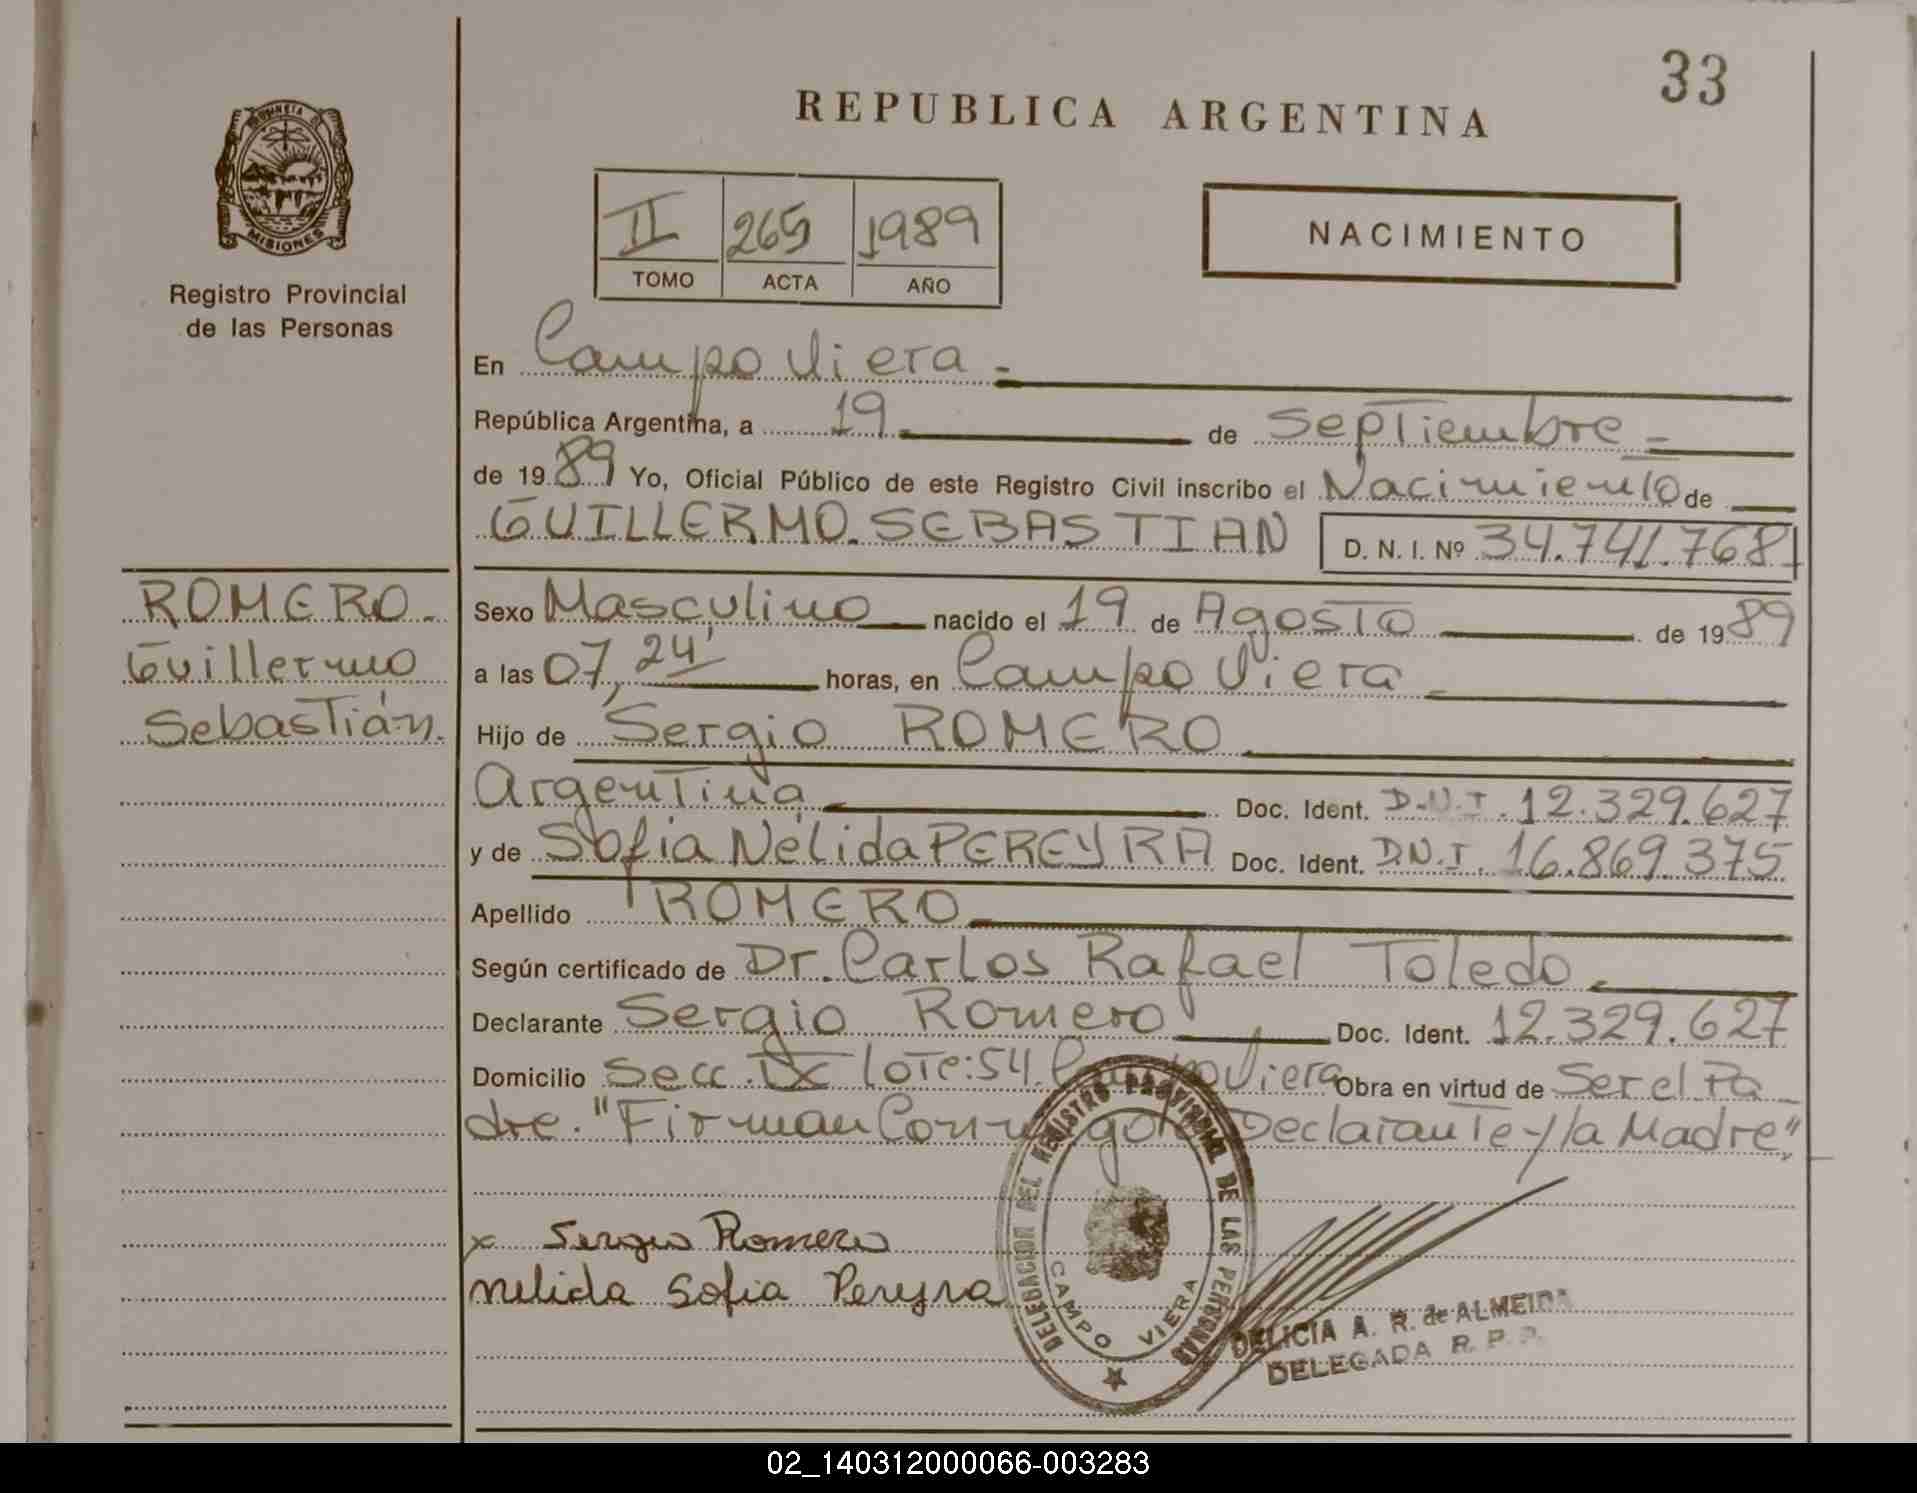 33
REPUBLICA ARGENTINA
PROVINCIA DE MISIONES
Registro Provincial
de las Personas
II 265 1989
TOMO ACTA AÑO
NACIMIENTO
En Campo Viera.-
República Argentina, a 19 de Septiembre.-
de 1989 Yo, Oficial Público de este Registro Civil inscribo el Nacimiento de
GUILLERMO SEBASTIAN D. N. I. Nº 34.741.768
ROMERO.
Guillermo
Sebastián.
Sexo Masculino nacido el 19 de Agosto de 1989
a las 07,24' horas, en Campo Viera
Hijo de Sergio ROMERO
Argentina Doc. Ident. D.N.I. 12.329.627
y de Sofia Nélida PEREYRA Doc. Ident. D.N.I. 16.869.375
Apellido ROMERO
Según certificado de Dr. Carlos Rafael Toledo
Declarante Sergio Romero Doc. Ident. 12.329.627
Domicilio Secc. IX lote:54. Campo Viera Obra en virtud de Ser el Pa
dre. "Firman Conmigo Declarante y la Madre"
x Sergio Romero
Nelida Sofia Pereyra
DELEGACION DEL REGISTRO PROVINCIAL DE LAS PERSONAS
CAMPO VIERA
DELICIA A. R. de ALMEIDA
DELEGADA R. P. P.
02_140312000066-003283